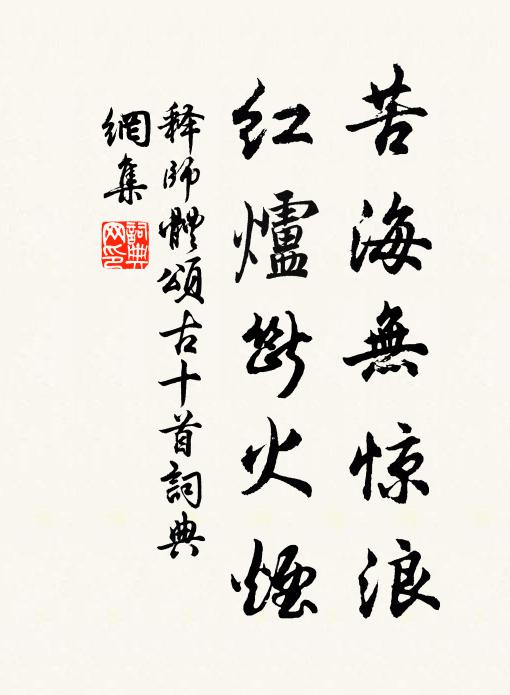 苦海無惊浪
紅爐斷火煙
释師體頌古十首詞典
網集
詞典
网印